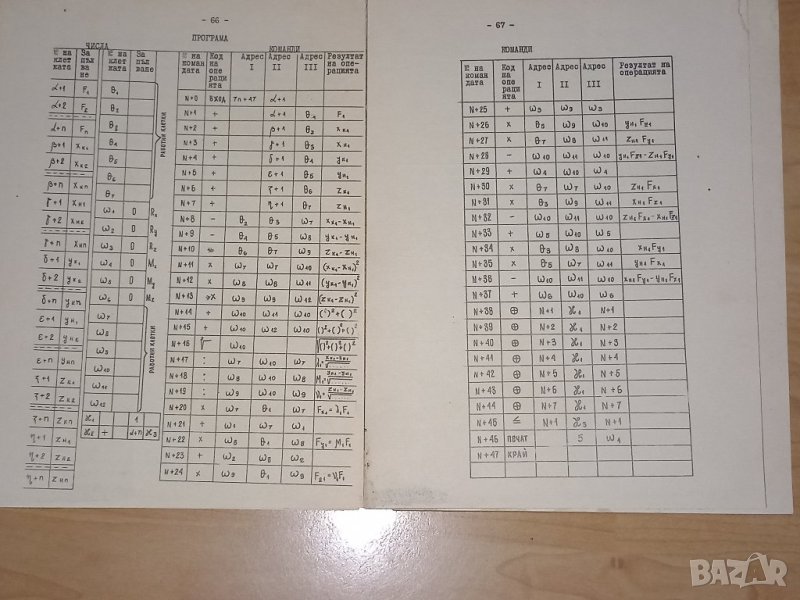 - 66 -
ПРОГРАМА
ЧИСЛА
КОМАНДИ
№ на клет ката | За пъл ва не | № на клет ката | За пъл ване
α+1 | F₁ | θ₁
α+2 | F₂ | θ₂
α+n | Fn | θ₃
β+1 | Xк₁ | θ₄
β+2 | Xк₂ | θ₅
β+n | Xкn | θ₆
θ₇
γ+1 | Xн₁ | ω₁ | 0 | Rₓ
γ+2 | Xн₂ | ω₂ | 0 | Ry
γ+n | Xнn | ω₃ | 0 | Rz
δ+1 | yк₁ | ω₄ | 0 | Mₓ
δ+2 | yк₂ | ω₅ | 0 | My
δ+n | yкn | ω₆ | 0 | Mz
ε+1 | yн₁ | ω₇
ε+2 | yн₂ | ω₈
ε+n | yнn | ω₉
ζ+1 | Zк₁ | ω₁₀
ζ+2 | Zк₂ | ω₁₁
ζ+n | Zкn | ω₁₂
η+1 | Zн₁
η+2 | Zн₂
η+n | Zнn
РАБОТНИ КЛЕТКИ
РАБОТНИ КЛЕТКИ
№ на коман дата | Код на опе раци ята | Адрес I | Адрес II | Адрес III | Резултат на опе- рацията
N+0 | ВХОД | 7n+17 | α+1
N+1 | + | | α+1 | θ₁ | F₁
N+2 | + | | β+1 | θ₂ | Xк₁
N+3 | + | | γ+1 | θ₃ | Xн₁
N+4 | + | | δ+1 | θ₄ | yк₁
N+5 | + | | ε+1 | θ₅ | yн₁
N+6 | + | | ζ+1 | θ₆ | Zк₁
N+7 | + | | η+1 | θ₇ | Zн₁
N+8 | - | θ₂ | θ₃ | ω₇ | Xк₁-Xн₁
N+9 | - | θ₄ | θ₅ | ω₈ | yк₁-yн₁
N+10 | | θ₆ | θ₇ | ω₉ | Zк₁-Zн₁
N+11 | x | ω₇ | ω₇ | ω₁₀ | (Xк₁-Xн₁)²
N+12 | x | ω₈ | ω₈ | ω₁₁ | (yк₁-yн₁)²
N+13 | x | ω₉ | ω₉ | ω₁₂ | (Zк₁-Zн₁)²
N+14 | + | ω₁₀ | ω₁₁ | ω₁₀ | ()²+()²
N+15 | + | ω₁₀ | ω₁₂ | ω₁₀ | ()²+()²+()²
N+16 | √ | ω₁₀ | | ω₁₀ | √()²+()²+()²
N+17 | : | ω₇ | ω₁₀ | ω₇
N+18 | : | ω₈ | ω₁₀ | ω₈
N+19 | : | ω₉ | ω₁₀ | ω₉
N+20 | x | ω₇ | θ₁ | ω₇
N+21 | + | ω₁ | ω₇ | ω₁
N+22 | x | ω₈ | θ₁ | ω₈
N+23 | + | ω₂ | ω₈ | ω₂
N+24 | x | ω₉ | θ₁ | ω₉
- 67 -
КОМАНДИ
№ на коман дата | Код на опе раци ята | Адрес I | Адрес II | Адрес III | Резултат на операцията
N+25 | + | ω₃ | ω₉ | ω₃
N+26 | x | θ₅ | ω₉ | ω₁₀ | yн₁Fz₁
N+27 | x | θ₇ | ω₈ | ω₁₁ | Zн₁Fy₁
N+28 | - | ω₁₀ | ω₁₁ | ω₁₀ | yн₁Fz₁-Zн₁Fy₁
N+29 | + | ω₄ | ω₁₀ | ω₄
N+30 | x | θ₇ | ω₇ | ω₁₀ | Zн₁Fx₁
N+31 | x | θ₃ | ω₉ | ω₁₁ | Xн₁Fz₁
N+32 | - | ω₁₀ | ω₁₁ | ω₁₀ | Zн₁Fx₁-Xн₁Fz₁
N+33 | + | ω₅ | ω₁₀ | ω₅
N+34 | x | θ₃ | ω₈ | ω₁₀ | Xн₁Fy₁
N+35 | x | θ₅ | ω₇ | ω₁₁ | yн₁Fx₁
N+36 | - | ω₁₀ | ω₁₁ | ω₁₀ | Xн₁Fy₁-yн₁Fx₁
N+37 | + | ω₆ | ω₁₀ | ω₆
N+38 | ⊕ | N+1 | ℋ₁ | N+1
N+39 | ⊕ | N+2 | ℋ₁ | N+2
N+40 | ⊕ | N+3 | ℋ₁ | N+3
N+41 | ⊕ | N+4 | ℋ₁ | N+4
N+42 | ⊕ | N+5 | ℋ₁ | N+5
N+43 | ⊕ | N+6 | ℋ₁ | N+6
N+44 | ⊕ | N+7 | ℋ₁ | N+7
N+45 | ≤ | N+1 | ℋ₃ | N+1
N+46 | ПЕЧАТ | | 5 | ω₁
N+47 | КРАЙ
BAZAR